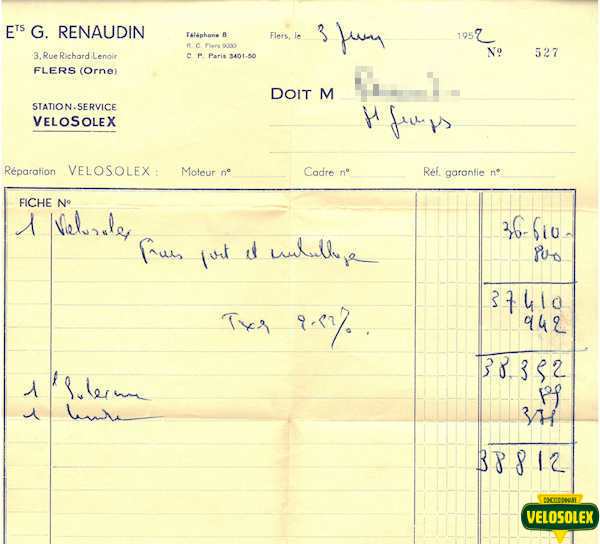 ETS G. RENAUDIN
3, Rue Richard-Lenoir
FLERS (Orne)
STATION-SERVICE
VELOSOLEX
Téléphone 8
R. C. Flers 9090
C. P. Paris 3401-50
Flers, le 3 1952
Nº 527
DOIT M
St Georges
Réparation VELOSOLEX : Moteur nº Cadre nº Réf. garantie nº
FICHE Nº
1 Velosolex 36.610
frais port et emballage 800
37410
Taxes 942
38.352
1 89
1 371
38812
CONCESSIONNAIRE
VELOSOLEX